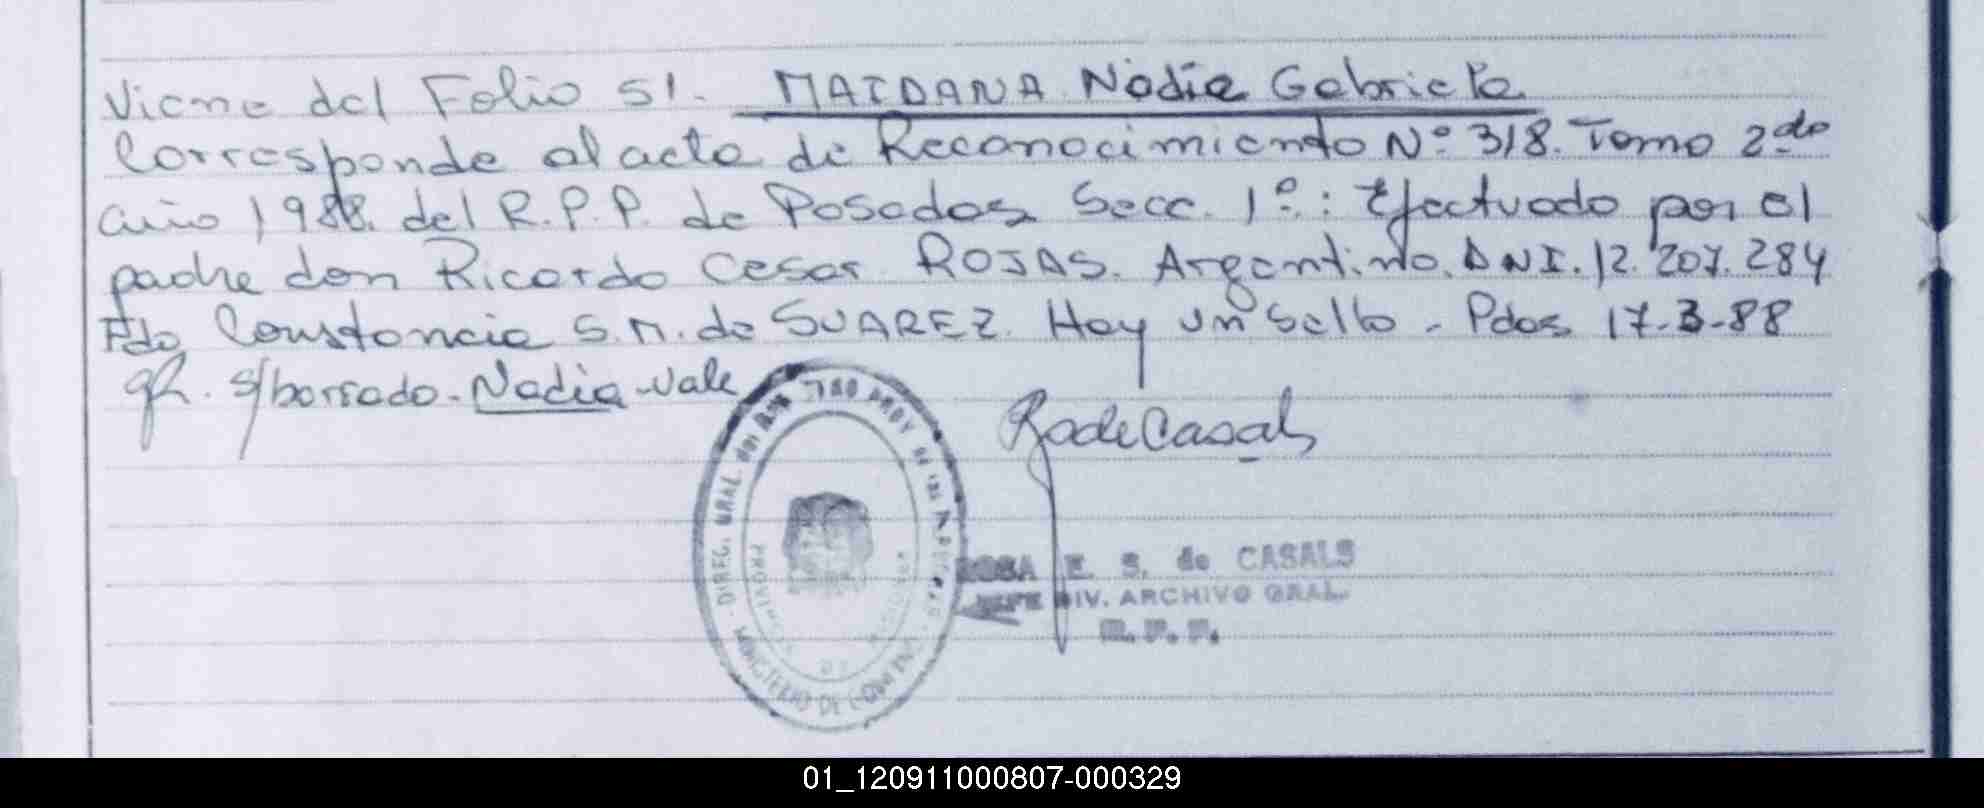 Viene del Folio 51. MAIDANA Nadia Gabriela
Corresponde al acta de Reconocimiento Nº 318. Tomo 2do
año 1988. del R.P.P. de Posadas Secc. 1º: Efectuado por el
padre don Ricardo Cesar ROJAS. Argentino. DNI. 12.207.284
Fdo Constancia S.M. de SUAREZ. Hay un Sello - Pdas 17-3-88
gR. s/borrado - Nadia - vale
RSdeCasals
DIREC. GRAL. DEL REG. PROV. DE LAS PERSONAS
MINISTERIO DE GOBIERNO
PROVINCIA DE MISIONES
ROSA E. S. de CASALS
JEFE DIV. ARCHIVO GRAL.
R. P. P.
01_120911000807-000329